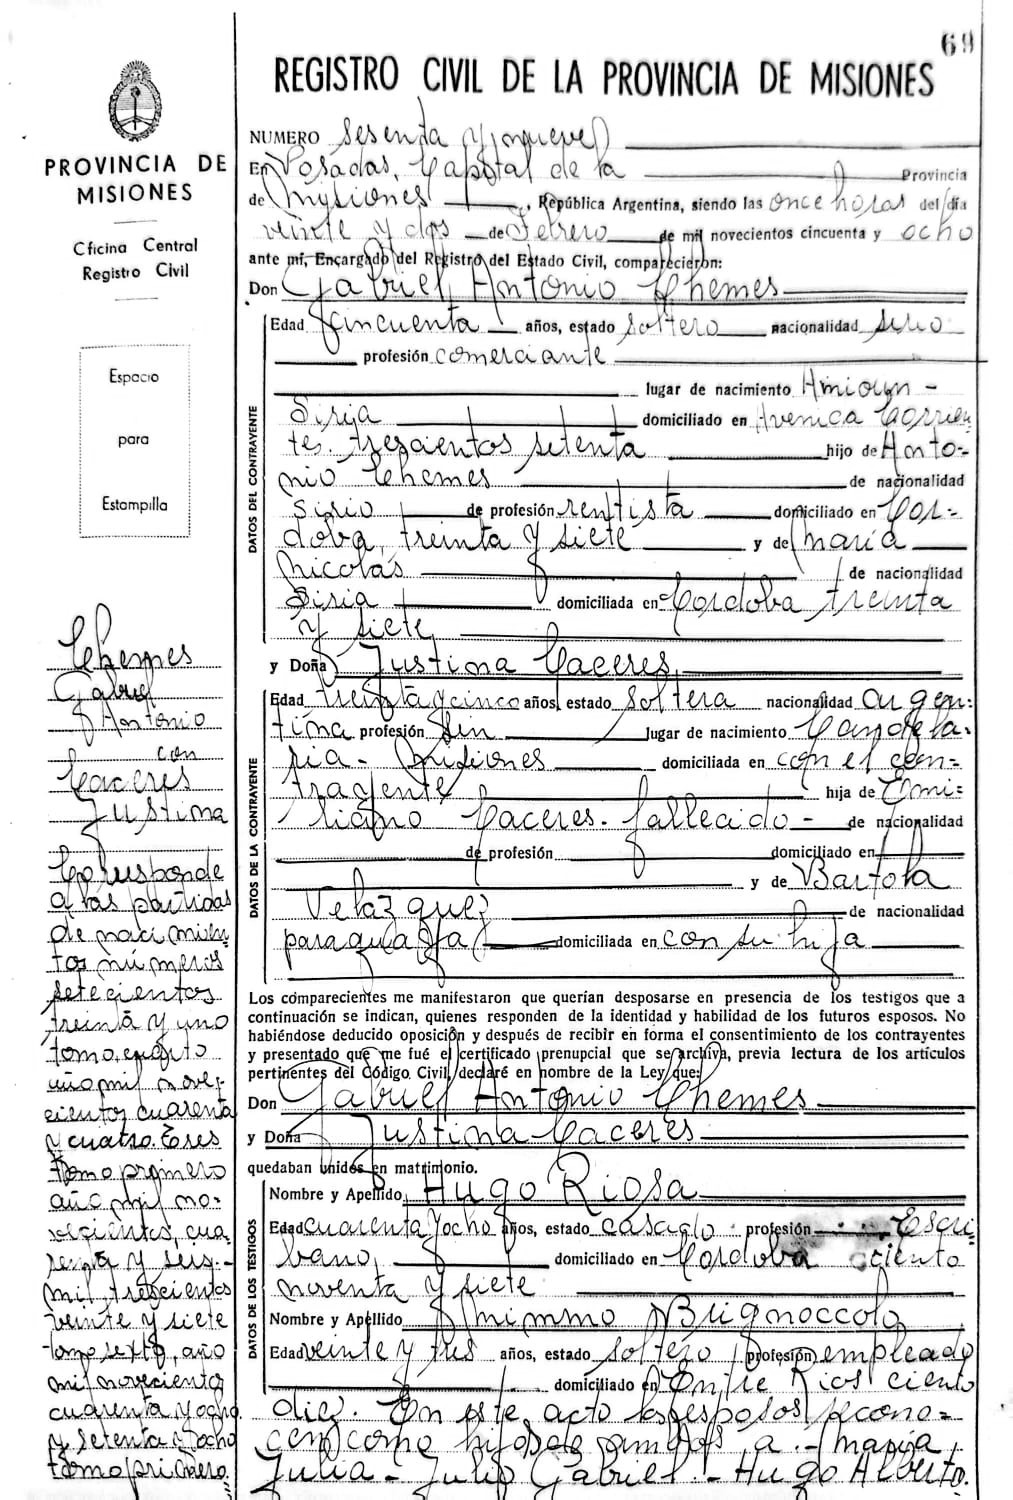 69
REGISTRO CIVIL DE LA PROVINCIA DE MISIONES
PROVINCIA DE
MISIONES
Oficina Central
Registro Civil
Espacio
para
Estampilla
NUMERO Sesenta y nueve
En Posadas, Capital de la Provincia
de Misiones, República Argentina, siendo las once horas del día
veinte y dos de Febrero de mil novecientos cincuenta y ocho
ante mí, Encargado del Registro del Estado Civil, comparecieron:
Don Gabriel Antonio Chemes
DATOS DEL CONTRAYENTE
Edad cincuenta años, estado soltero nacionalidad sirio
profesión comerciante
lugar de nacimiento Amioun -
Siria domiciliado en Avenida Corrien
tes. trescientos setenta hijo de Anto=
nio Chemes de nacionalidad
sirio de profesión rentista domiciliado en Cor=
doba, treinta y siete y de María
Nicolás de nacionalidad
Siria domiciliada en Cordoba treinta
y siete
y Doña Justina Caceres
DATOS DE LA CONTRAYENTE
Edad treinta y cinco años, estado soltera nacionalidad argen=
tina profesión sin lugar de nacimiento Candela=
ria - Misiones domiciliada en con el con=
trayente hija de Emi=
liano Caceres. fallecido - de nacionalidad
de profesión domiciliado en
y de Bartola
Velazquez de nacionalidad
paraguaya domiciliada en con su hija
Los comparecientes me manifestaron que querían desposarse en presencia de los testigos que a
continuación se indican, quienes responden de la identidad y habilidad de los futuros esposos. No
habiéndose deducido oposición y después de recibir en forma el consentimiento de los contrayentes
y presentado que me fué el certificado prenupcial que se archiva, previa lectura de los artículos
pertinentes del Código Civil, declaré en nombre de la Ley que:
Don Gabriel Antonio Chemes
y Doña Justina Caceres
quedaban unidos en matrimonio.
DATOS DE LOS TESTIGOS
Nombre y Apellido Hugo Riosa
Edad cuarenta y ocho años, estado casado profesión Escri
bano, domiciliado en Cordoba ciento
noventa y siete
Nombre y Apellido Mimmo Brignoccolo
Edad veinte y tres años, estado soltero profesión empleado
domiciliado en Entre Rios ciento
diez. En este acto los esposos recono=
cen como hijos de ambos, a - María
Julia - Julio Gabriel - Hugo Alberto.
Chemes
Gabriel
Antonio
con
Caceres
Justina
Corresponde
a las partidas
de nacimien
tos números
setecientos
treinta y uno
tomo
año mil nove-
cientos cuarenta
y cuatro. Tres
tomo primero
año mil no=
vecientos cua
renta y seis.-
mil trescientos
veinte y siete
tomo sexto, año
mil novecientos
cuarenta y ocho
y setenta y ocho
tomo primero.